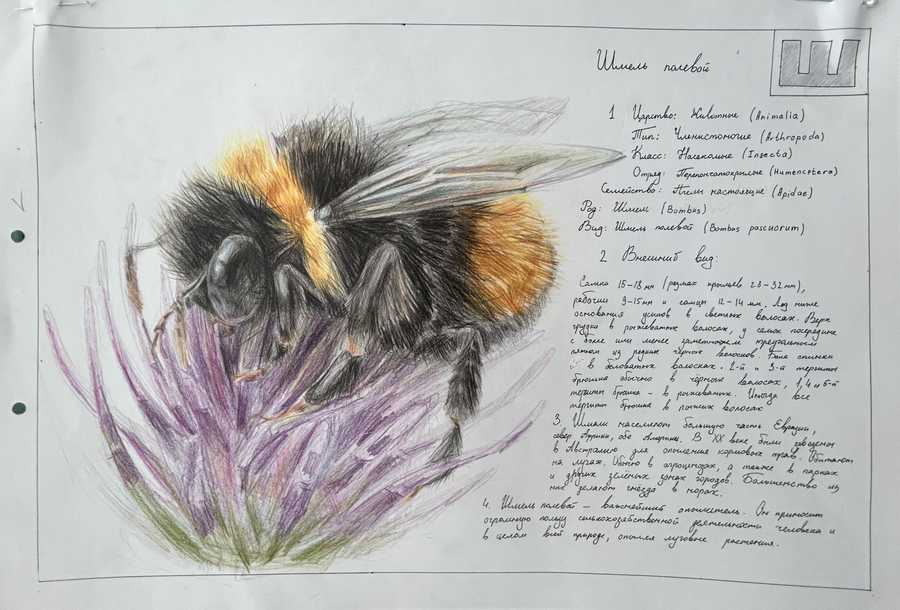 Ш
Шмель полевой
1 Царство: Животные (Animalia)
Тип: Членистоногие (Arthropoda)
Класс: Насекомые (Insecta)
Отряд: Перепончатокрылые (Humenoptera)
Семейство: Пчелы настоящие (Apidae)
Род: Шмели (Bombus)
Вид: Шмель полевой (Bombus pascuorum)
2 Внешний вид:
Самка 15-18 мм (размах крыльев 28-32 мм),
рабочии 9-15мм и самцы 12-14 мм. Лоб ниже
основания усиков в светлых волосах. Верх
грудки в рыжеватых волосах, у самок посередине
с более или менее заметножелм треугольным
пятном из редких черных волосков. Бока спинки
в беловатых волосках. 2-й и 3-й тергиты
брюшка обычно в чёрных волосах, 1,4 и 5-й
тергиты брюшка - в рыжеватых. Иногда все
тергиты брюшка в рыжих волосах
3. Шмели населяют большую часть Евразии,
север Африки, обе Америки. В XX веке были завезены
в Австралию для опыления кормовых трав. Обитают
на лугах. Обычно в агроценозах, а также в парках
и других зелёных зонах городов. Большинство из
них делают гнёзда в норах.
4. Шмель полевой - важнейший опылитель. Он приносит
огромную пользу сельскохозяйственной деятельности человека и
в целом всей природе, опыляя луговые растения.